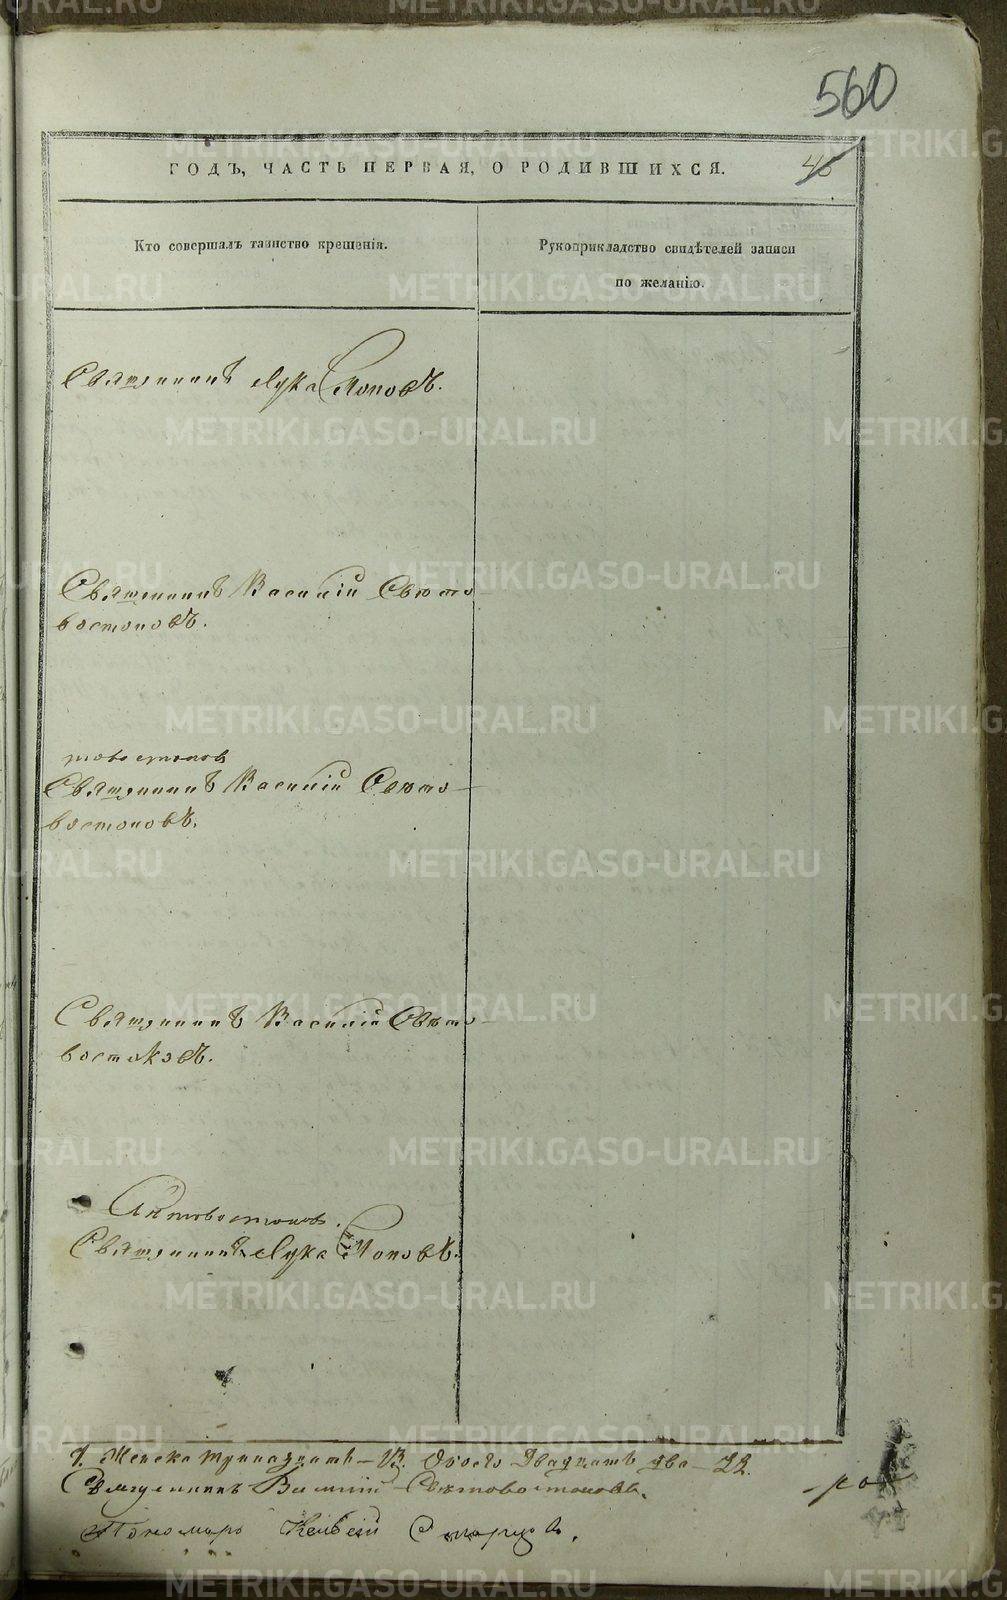 560
ГОДЪ, ЧАСТЬ ПЕРВАЯ, О РОДИВШИХСЯ.
Кто совершалъ таинство крещенія.
Рукоприкладство свидѣтелей записи
по желанію.
Священникъ Лука Поповъ.
Священникъ Василій Свѣто-
востоковъ.
товостоковъ
Священникъ Василій Свѣто-
востоковъ.
Священникъ Василій Свѣто-
востоковъ.
Свѣтовостоковъ.
Священникъ Лука Поповъ.
Женска тринадцать - 13. Обоего двадцать два - 22.
Священникъ Василій Свѣтовостоковъ.
Пономарь
METRIKI.GASO-URAL.RU